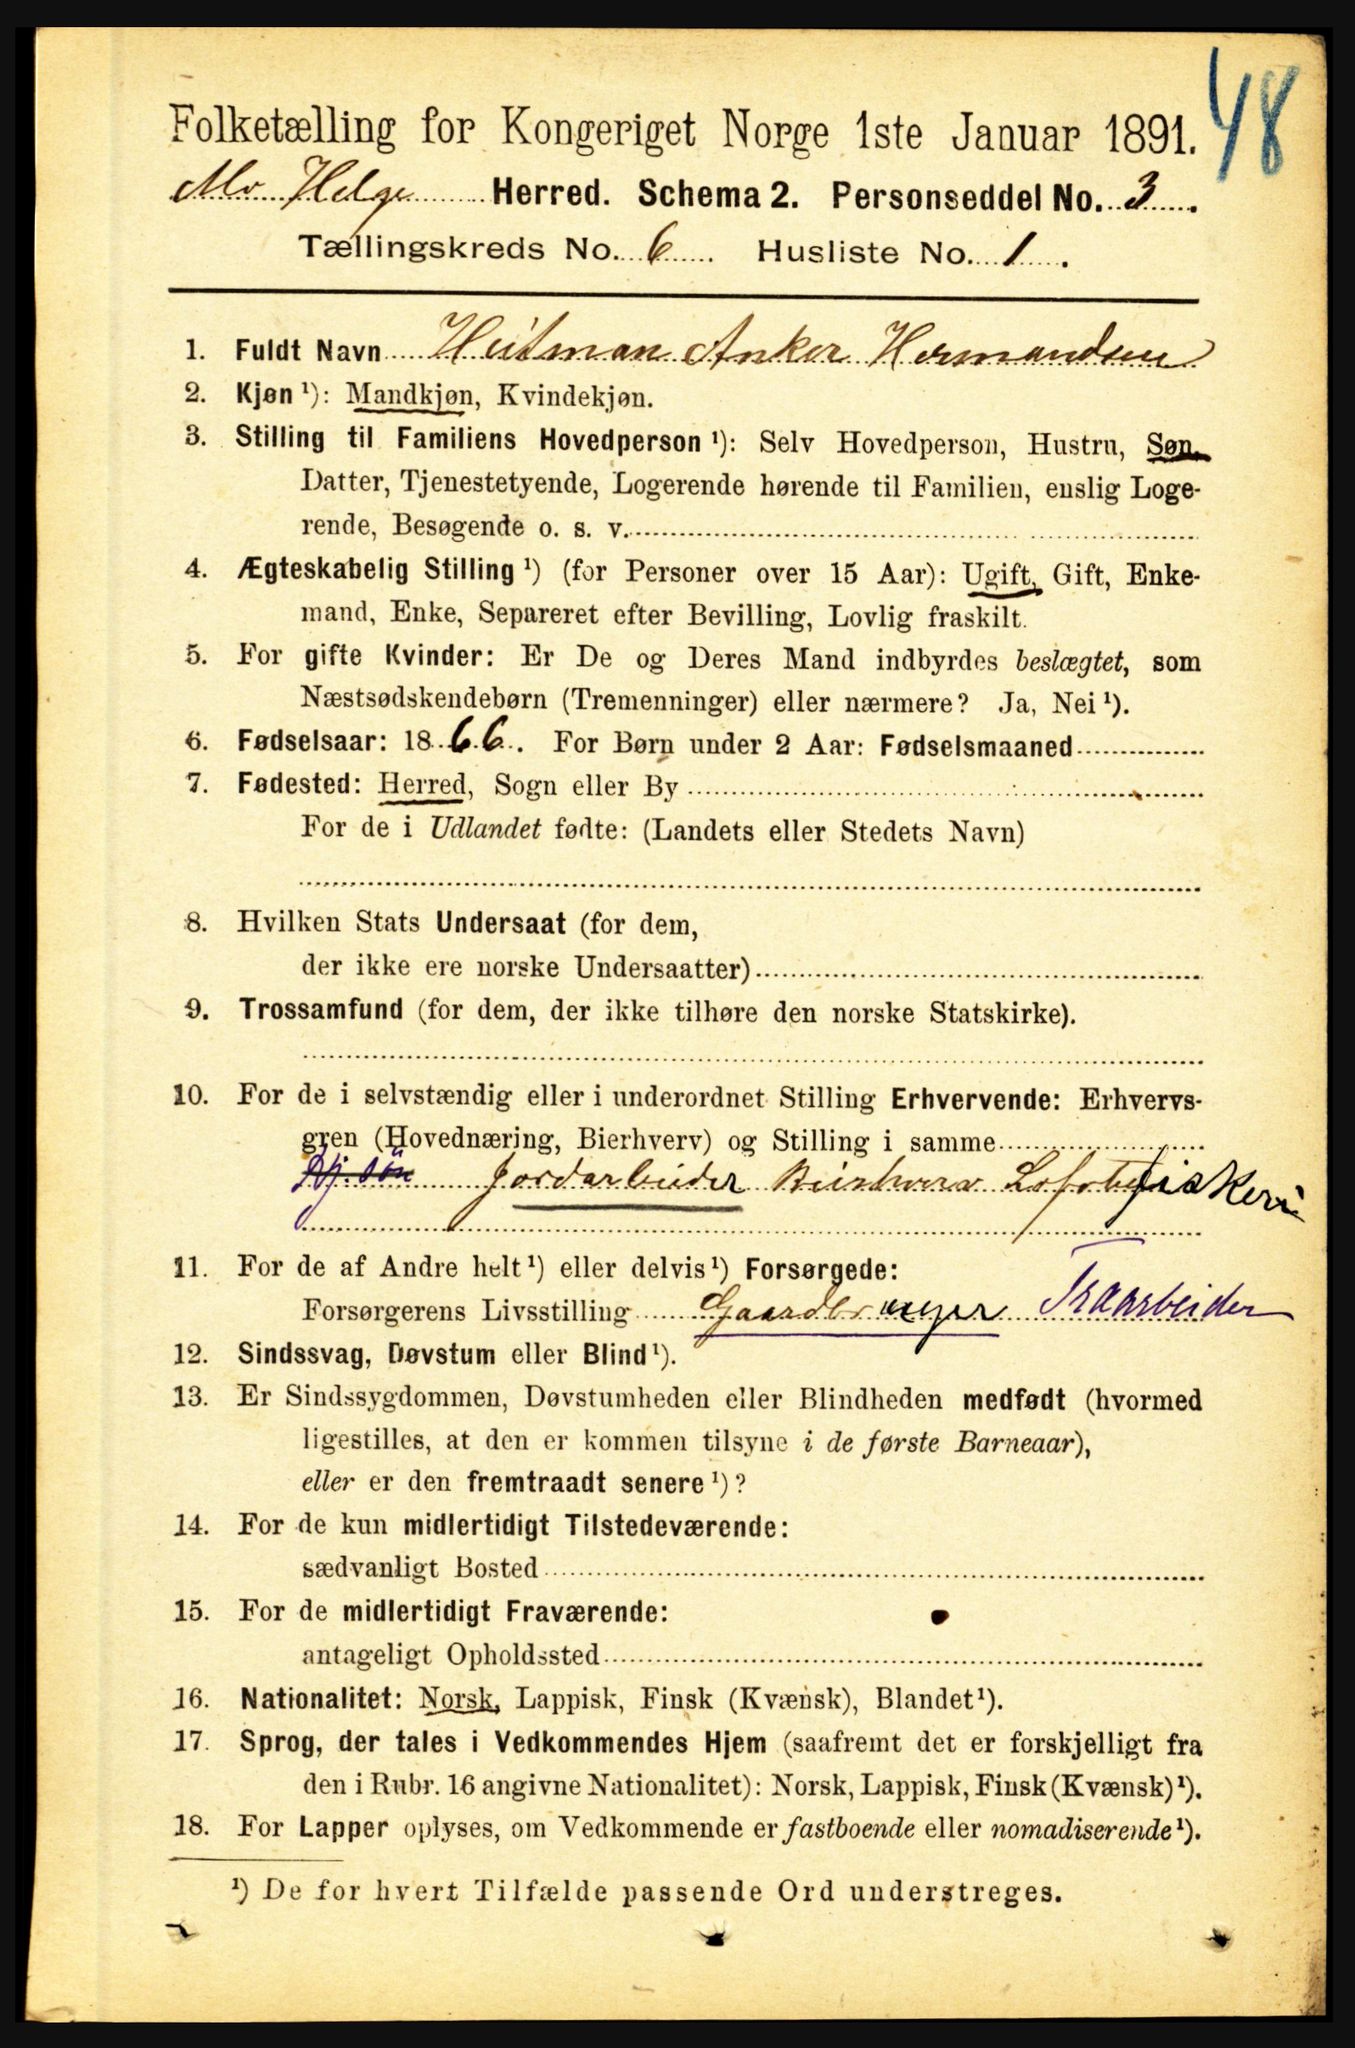 48
Folketælling for Kongeriget Norge 1ste Januar 1891.
Herred. Schema 2. Personseddel No. 3.
Tællingskreds No. 6. Husliste No. 1.
1. Fuldt Navn Heitman Anker Hermandsen
2. Kjøn ¹): Mandkjøn, Kvindekjøn.
3. Stilling til Familiens Hovedperson ¹): Selv Hovedperson, Hustru, Søn,
Datter, Tjenestetyende, Logerende hørende til Familien, enslig Loge-
rende, Besøgende o. s. v.
4. Ægteskabelig Stilling ¹) (for Personer over 15 Aar): Ugift, Gift, Enke-
mand, Enke, Separeret efter Bevilling, Lovlig fraskilt.
5. For gifte Kvinder: Er De og Deres Mand indbyrdes beslægtet, som
Næstsødskendebørn (Tremenninger) eller nærmere? Ja, Nei ¹).
6. Fødselsaar: 1866. For Børn under 2 Aar: Fødselsmaaned
7. Fødested: Herred, Sogn eller By
For de i Udlandet fødte: (Landets eller Stedets Navn)
8. Hvilken Stats Undersaat (for dem,
der ikke ere norske Undersaatter)
9. Trossamfund (for dem, der ikke tilhøre den norske Statskirke).
10. For de i selvstændig eller i underordnet Stilling Erhvervende: Erhvervs-
gren (Hovednæring, Bierhverv) og Stilling i samme
Jordarbeider Lofotfiskeri
11. For de af Andre helt ¹) eller delvis ¹) Forsørgede:
Forsørgerens Livsstilling Gaardbruger Træarbeider
12. Sindssvag, Døvstum eller Blind ¹).
13. Er Sindssygdommen, Døvstumheden eller Blindheden medfødt (hvormed
ligestilles, at den er kommen tilsyne i de første Barneaar),
eller er den fremtraadt senere ¹)?
14. For de kun midlertidigt Tilstedeværende:
sædvanligt Bosted
15. For de midlertidigt Fraværende:
antageligt Opholdssted
16. Nationalitet: Norsk, Lappisk, Finsk (Kvænsk), Blandet ¹).
17. Sprog, der tales i Vedkommendes Hjem (saafremt det er forskjelligt fra
den i Rubr. 16 angivne Nationalitet): Norsk, Lappisk, Finsk (Kvænsk) ¹).
18. For Lapper oplyses, om Vedkommende er fastboende eller nomadiserende ¹).
¹) De for hvert Tilfælde passende Ord understreges.